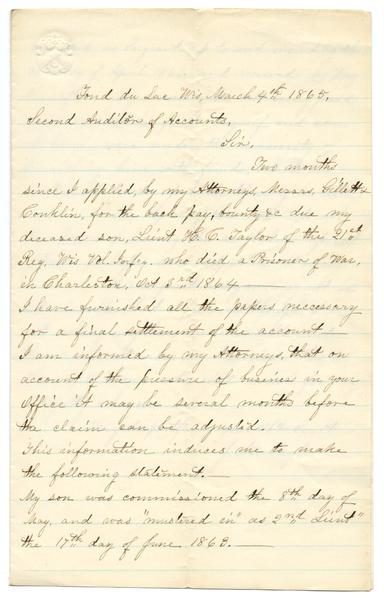 Fond du Lac Wis, March 4th 1865,
Second Auditor of Accounts,
Sir,
Two months
since I applied, by my Attorneys, Messrs, Gillett &
Conklin, for the back pay, bounty &c due my
deceased son, Lieut H. C. Taylor of the 21st
Reg. Wis Vol. Infty. who died a Prisoner of War,
in Charleston, Oct 3rd 1864 —
I have furnished all the papers neccessary
for a final settlement of the account —
I am informed by my Attorneys, that on
account of the pressure of business in your
Office it may be several months before
the claim can be adjustid.
This information induces me to make
the following statement. —
My son was commissioned the 8th day of
May, and was "mustered in" as 2nd Lieut"
the 17th day of June 1863. —